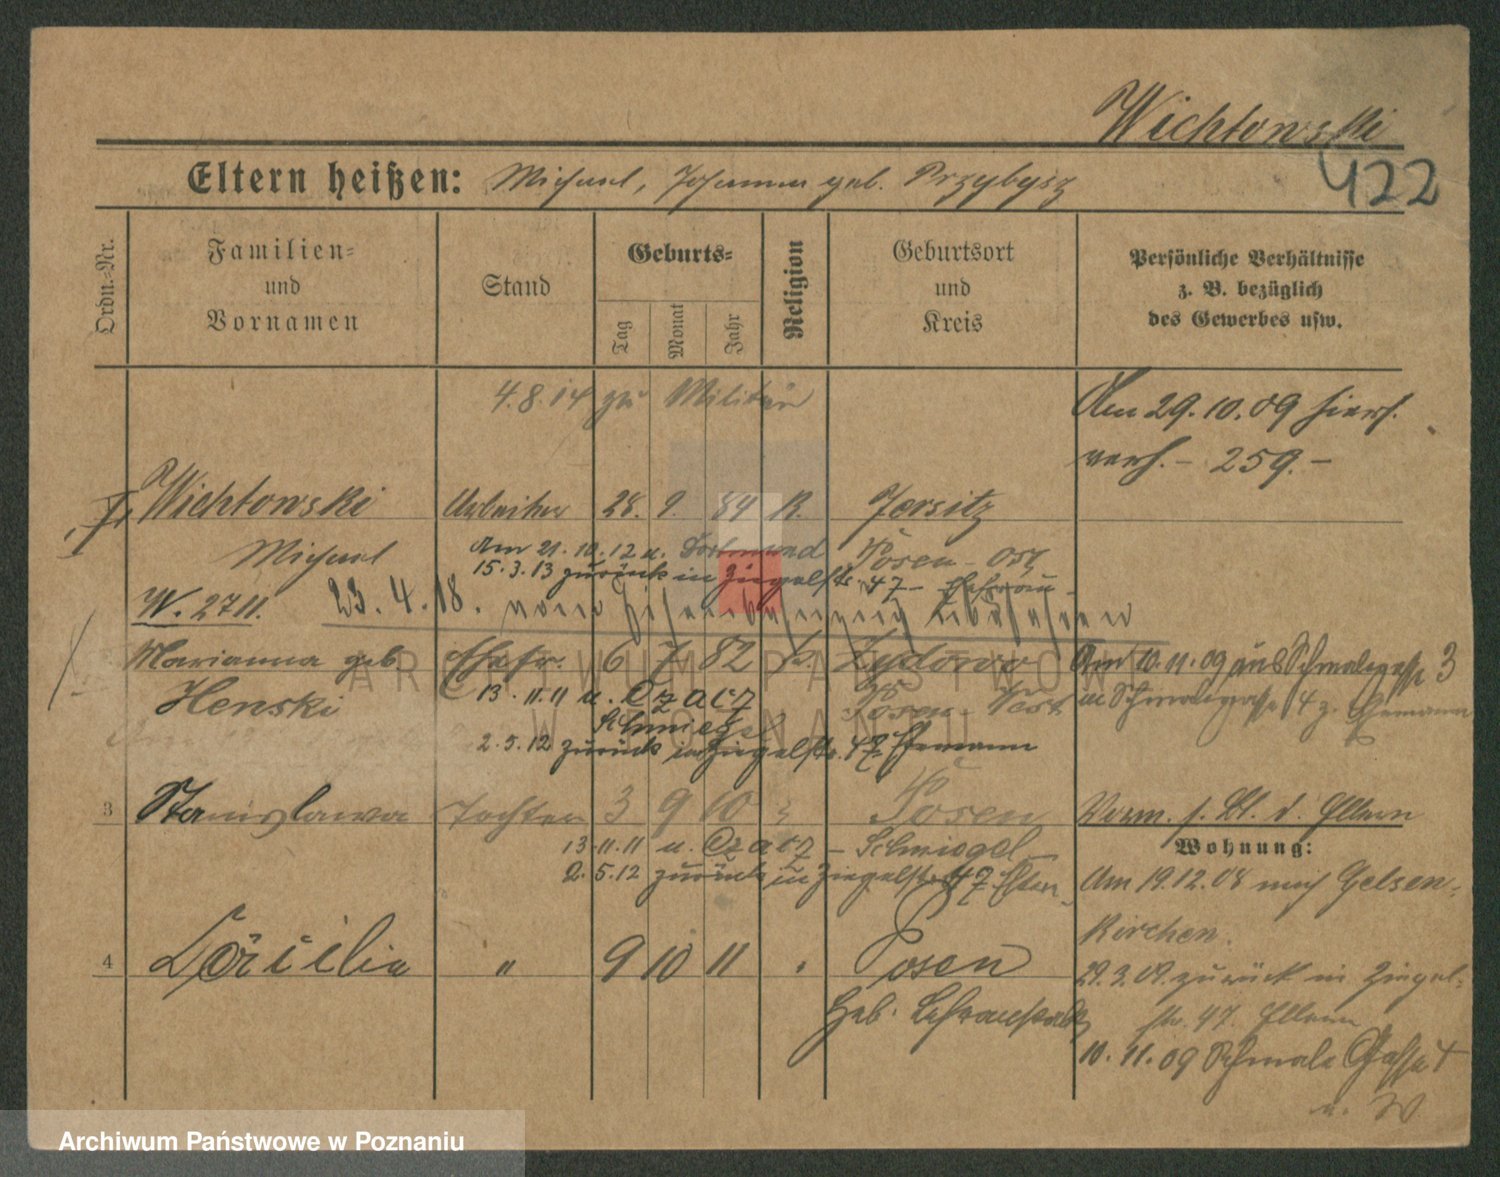 Wichtowski
422
Eltern heißen: Michael, Johanna geb. Przybysz
Ordn.-Nr.
Familien-
und
Vornamen
Stand
Geburts-
Tag
Monat
Jahr
Religion
Geburtsort
und
Kreis
Persönliche Verhältnisse
z. B. bezüglich
des Gewerbes usw.
4.8.14 zu Militär
Am 29.10.09 hiers.
verh. – 259. –
Wichtowski Arbeiter 28. 9. 84 K. Jersitz
Michael
Am 21.10.12 n. Dortmund Posen-Ost
15.3.13 zurück in Ziegelstr. 47 – Ehefrau
W. 2711. 23.4.18.
Marianna geb Ehefr. 6 7 82 k. Zydowo
Henski
Posen-West
13.11.11 n. Czacz
Schmiegel
2.5.12 zurück in Ziegelstr. 47 Ehemann
Am 10.11.09 aus Schmalegasse 3
in Schmalegasse 4 z. Ehemann
3 Stanislawa Tochter 3 9 10 Posen
13.11.11 n. Czacz – Schmiegel –
2.5.12 zurück in Ziegelstr. 47 Eltern
Vorm. s. Bl. d. Eltern
Wohnung:
Am 19.12.08 nach Gelsen-
kirchen.
29.3.09. zurück in Ziegel-
str. 47. Eltern
10.11.09 Schmale Gasse 4
n. W
4 Cäcilie " 9 10 11 Posen
Geb.
ARCHIWUM PAŃSTWOWE
W POZNANIU
Archiwum Państwowe w Poznaniu